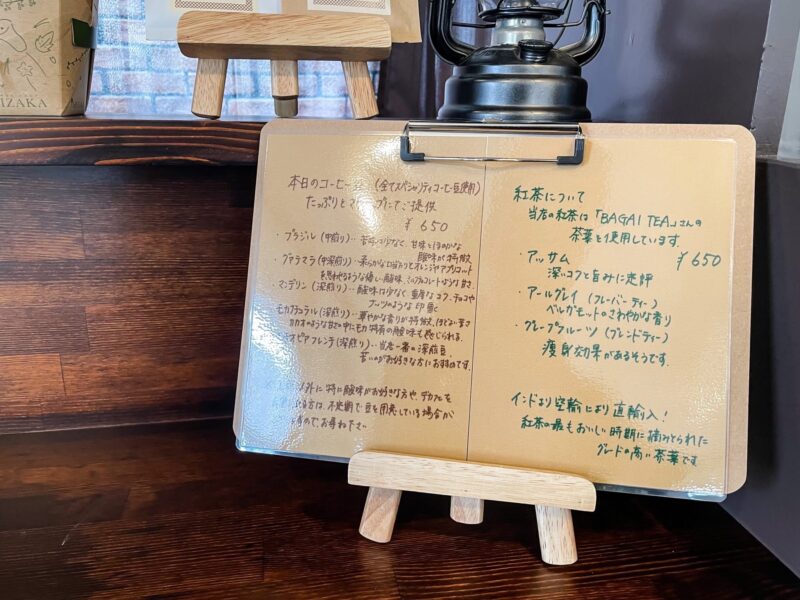 IZAKA
本日のコーヒー (全てスペシャリティコーヒー豆使用)
たっぷりとマグカップにてご提供
¥650
・ブラジル(中煎り)‥苦味は少なく、甘味とほのかな
酸味が特徴
・グァテマラ(中深煎り)‥柔らかな口当たりとオレンジやアプリコット
を思わせるような優しい酸味、ミルクチョコレートような甘さ
・マンデリン(深煎り)‥酸味は少なく、重厚なコク、チョコや
ナッツのような印象
モカナチュラル(深煎り)‥華やかな香りが特徴、ほどよい苦さ
カカオのような甘さの中にモカ特有の酸味も感じられる
オピアフレンチ(深煎り)‥当店一番の深煎豆
苦いのがお好きな方におすすめです。
外に特に酸味がお好きな方や、デカフェを
る方は、不定期で豆を用意している場合が
すのでお尋ね下さい
紅茶について
当店の紅茶は「BAGAI TEA」さんの
茶葉を使用しています。
・アッサム ¥650
深いコクと旨みに定評
・アールグレイ(フレーバーティー)
ベルガモットのさわやかな香り
・グレープフルーツ(ブレンドティー)
痩身効果があるそうです。
インドより空輸により直輸入!
紅茶の最もおいしい時期に摘みとられた
グレードの高い茶葉です